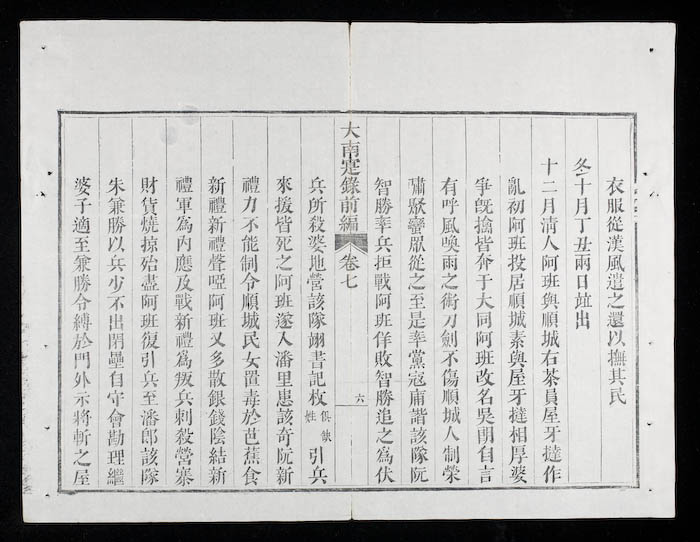 衣服從漢風遣之還以撫其民
冬十月丁丑兩日並出
十二月清人阿班與順城右茶員屋牙撻作
亂初阿班投居順城素與屋牙撻相厚婆
爭旣擒皆奔于大同阿班改名吳朗自言
有呼風喚雨之術刀劍不傷順城人制榮
嘯聚蠻眾從之至是率黨寇庯諧該隊阮
智勝率兵拒戰阿班佯敗智勝追之爲伏
大南寔錄前編 卷七 六
兵所殺婆地營該隊翊書記枚俱缺姓引兵
來援皆死之阿班遂入潘里患該奇阮新
禮力不能制令順城民女置毒於芭蕉食
新禮新禮聲啞阿班又多散銀錢陰結新
禮軍爲內應及戰新禮爲叛兵刺殺營寨
財貨燒掠殆盡阿班復引兵至潘郎該隊
朱兼勝以兵少不出閉壘自守會勘理繼
婆子適至兼勝令縛於門外示將斬之屋